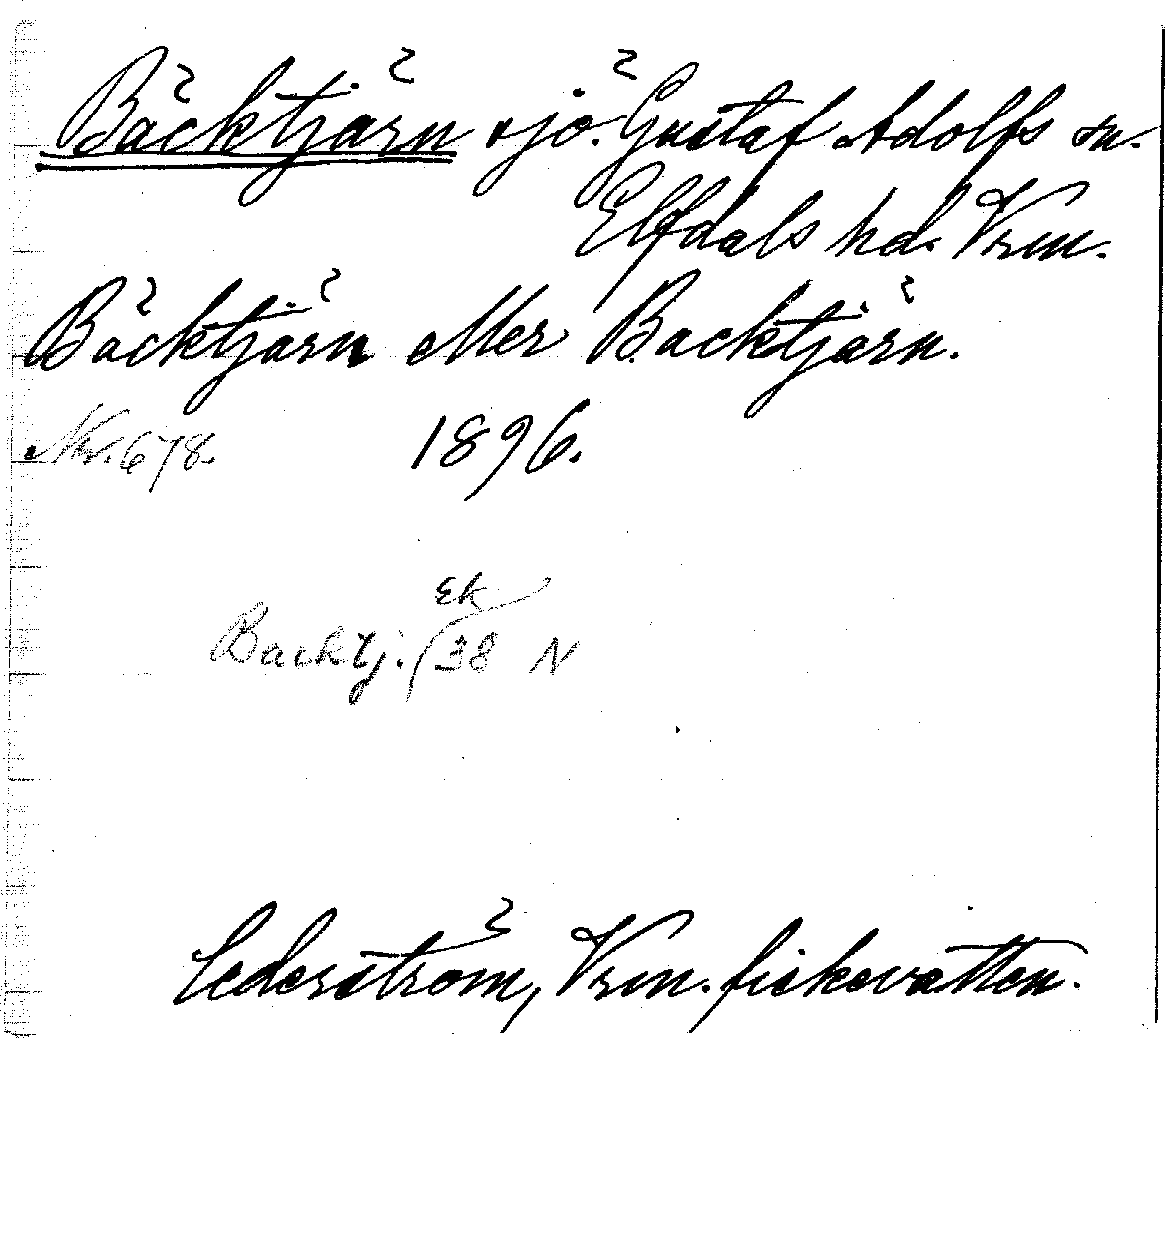 Bäcktjärn sjö. Gustaf Adolfs sn.
Elfdals hd. Vrm.
Bäcktjärn eller Backtjärn.
Nr. 678. 1896.
Ek
Backtj. 38 N
Cederström, Vrm. fiskevatten.